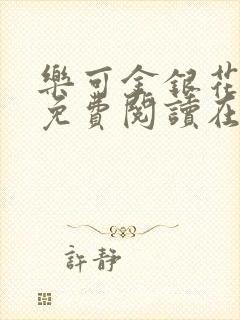 樂可金銀花
免費閱讀在
許靜